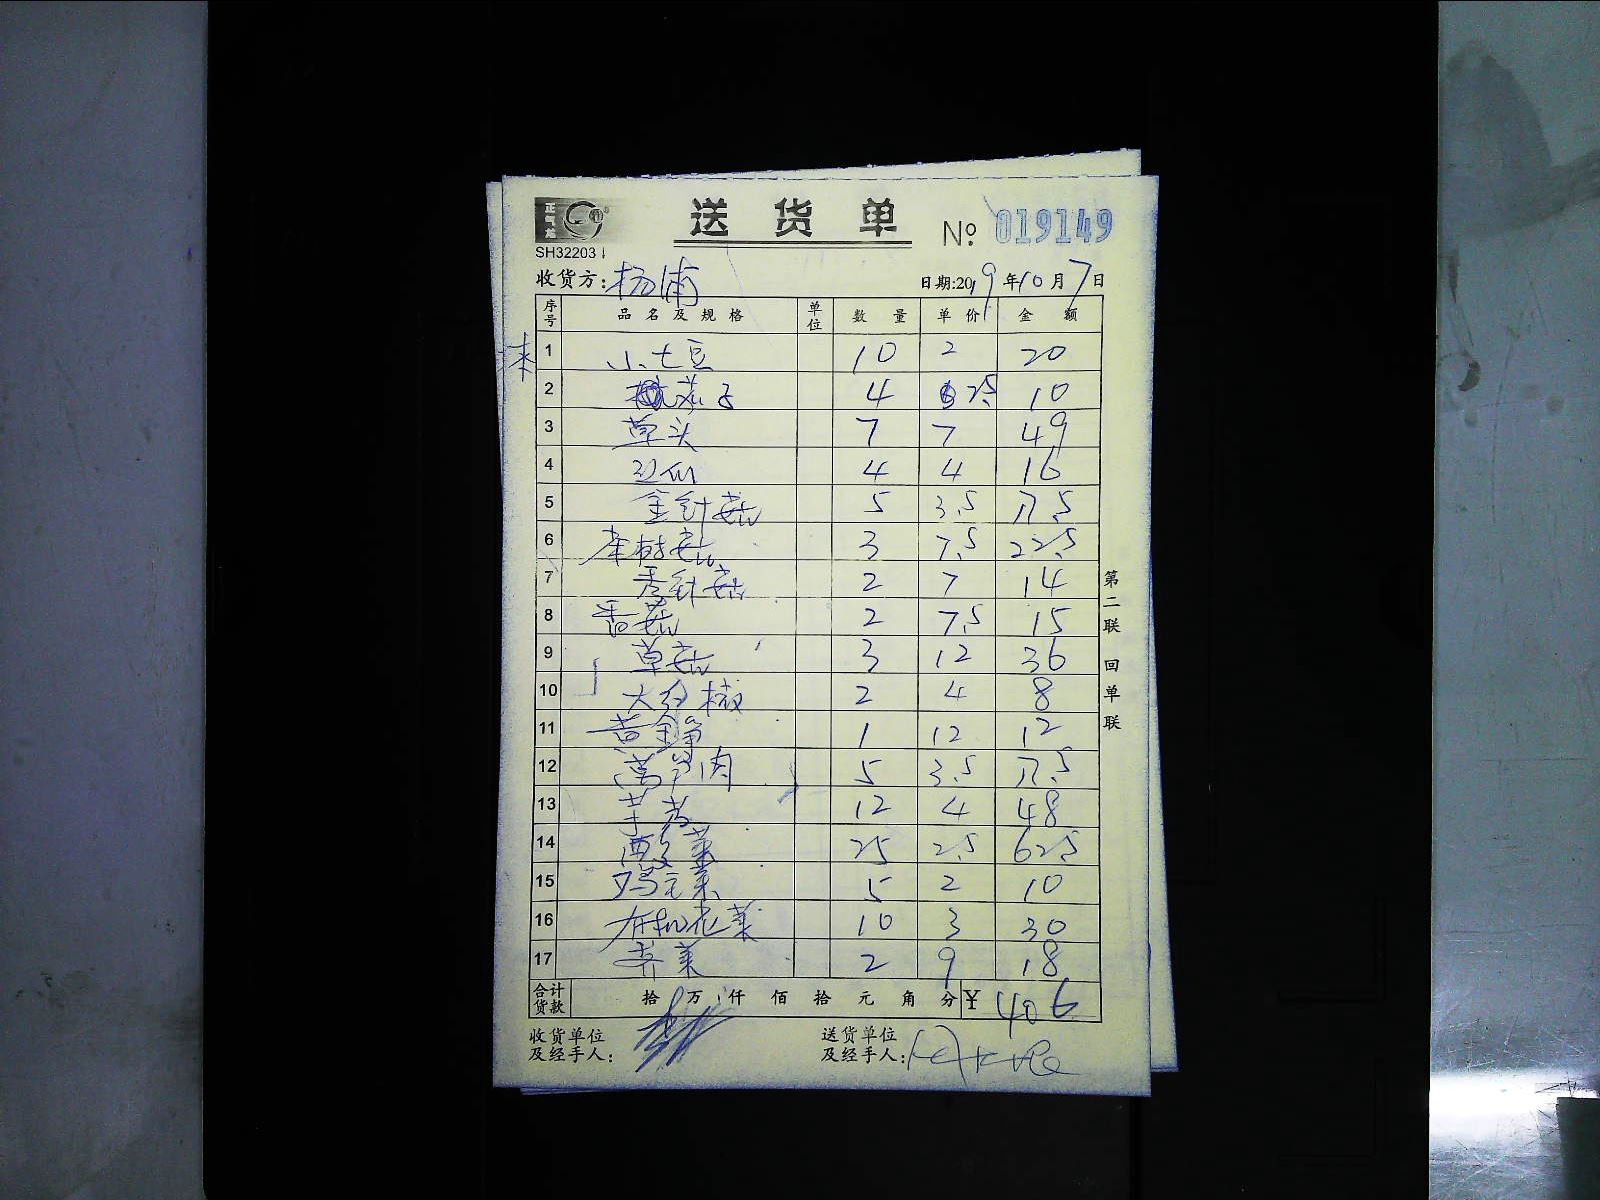 正气龙
送 货 单 № 019149
SH32203
收货方: 杨浦 日期:2019年10月7日
序号 品名及规格 单位 数量 单价 金额
1 小土豆 10 2 20
2 茄子 4 2.5 10
3 草头 7 7 49
4 4 4 16
5 金针菇 5 3.5 17.5
6 茶树菇 3 7.5 22.5
7 秀针菇 2 7 14
8 香菇 2 7.5 15
9 草菇 3 12 36
10 大红椒 2 4 8
11 黄金 1 12 12
12 莴笋肉 5 3.5 17.5
13 芋艿 12 4 48
14 菜 25 2.5 62.5
15 鸡毛菜 5 2 10
16 有机花菜 10 3 30
17 荠菜 2 9 18
合计货款 拾 万 仟 佰 拾 元 角 分 ¥ 406
收货单位及经手人:
送货单位及经手人:
第二联 回单联